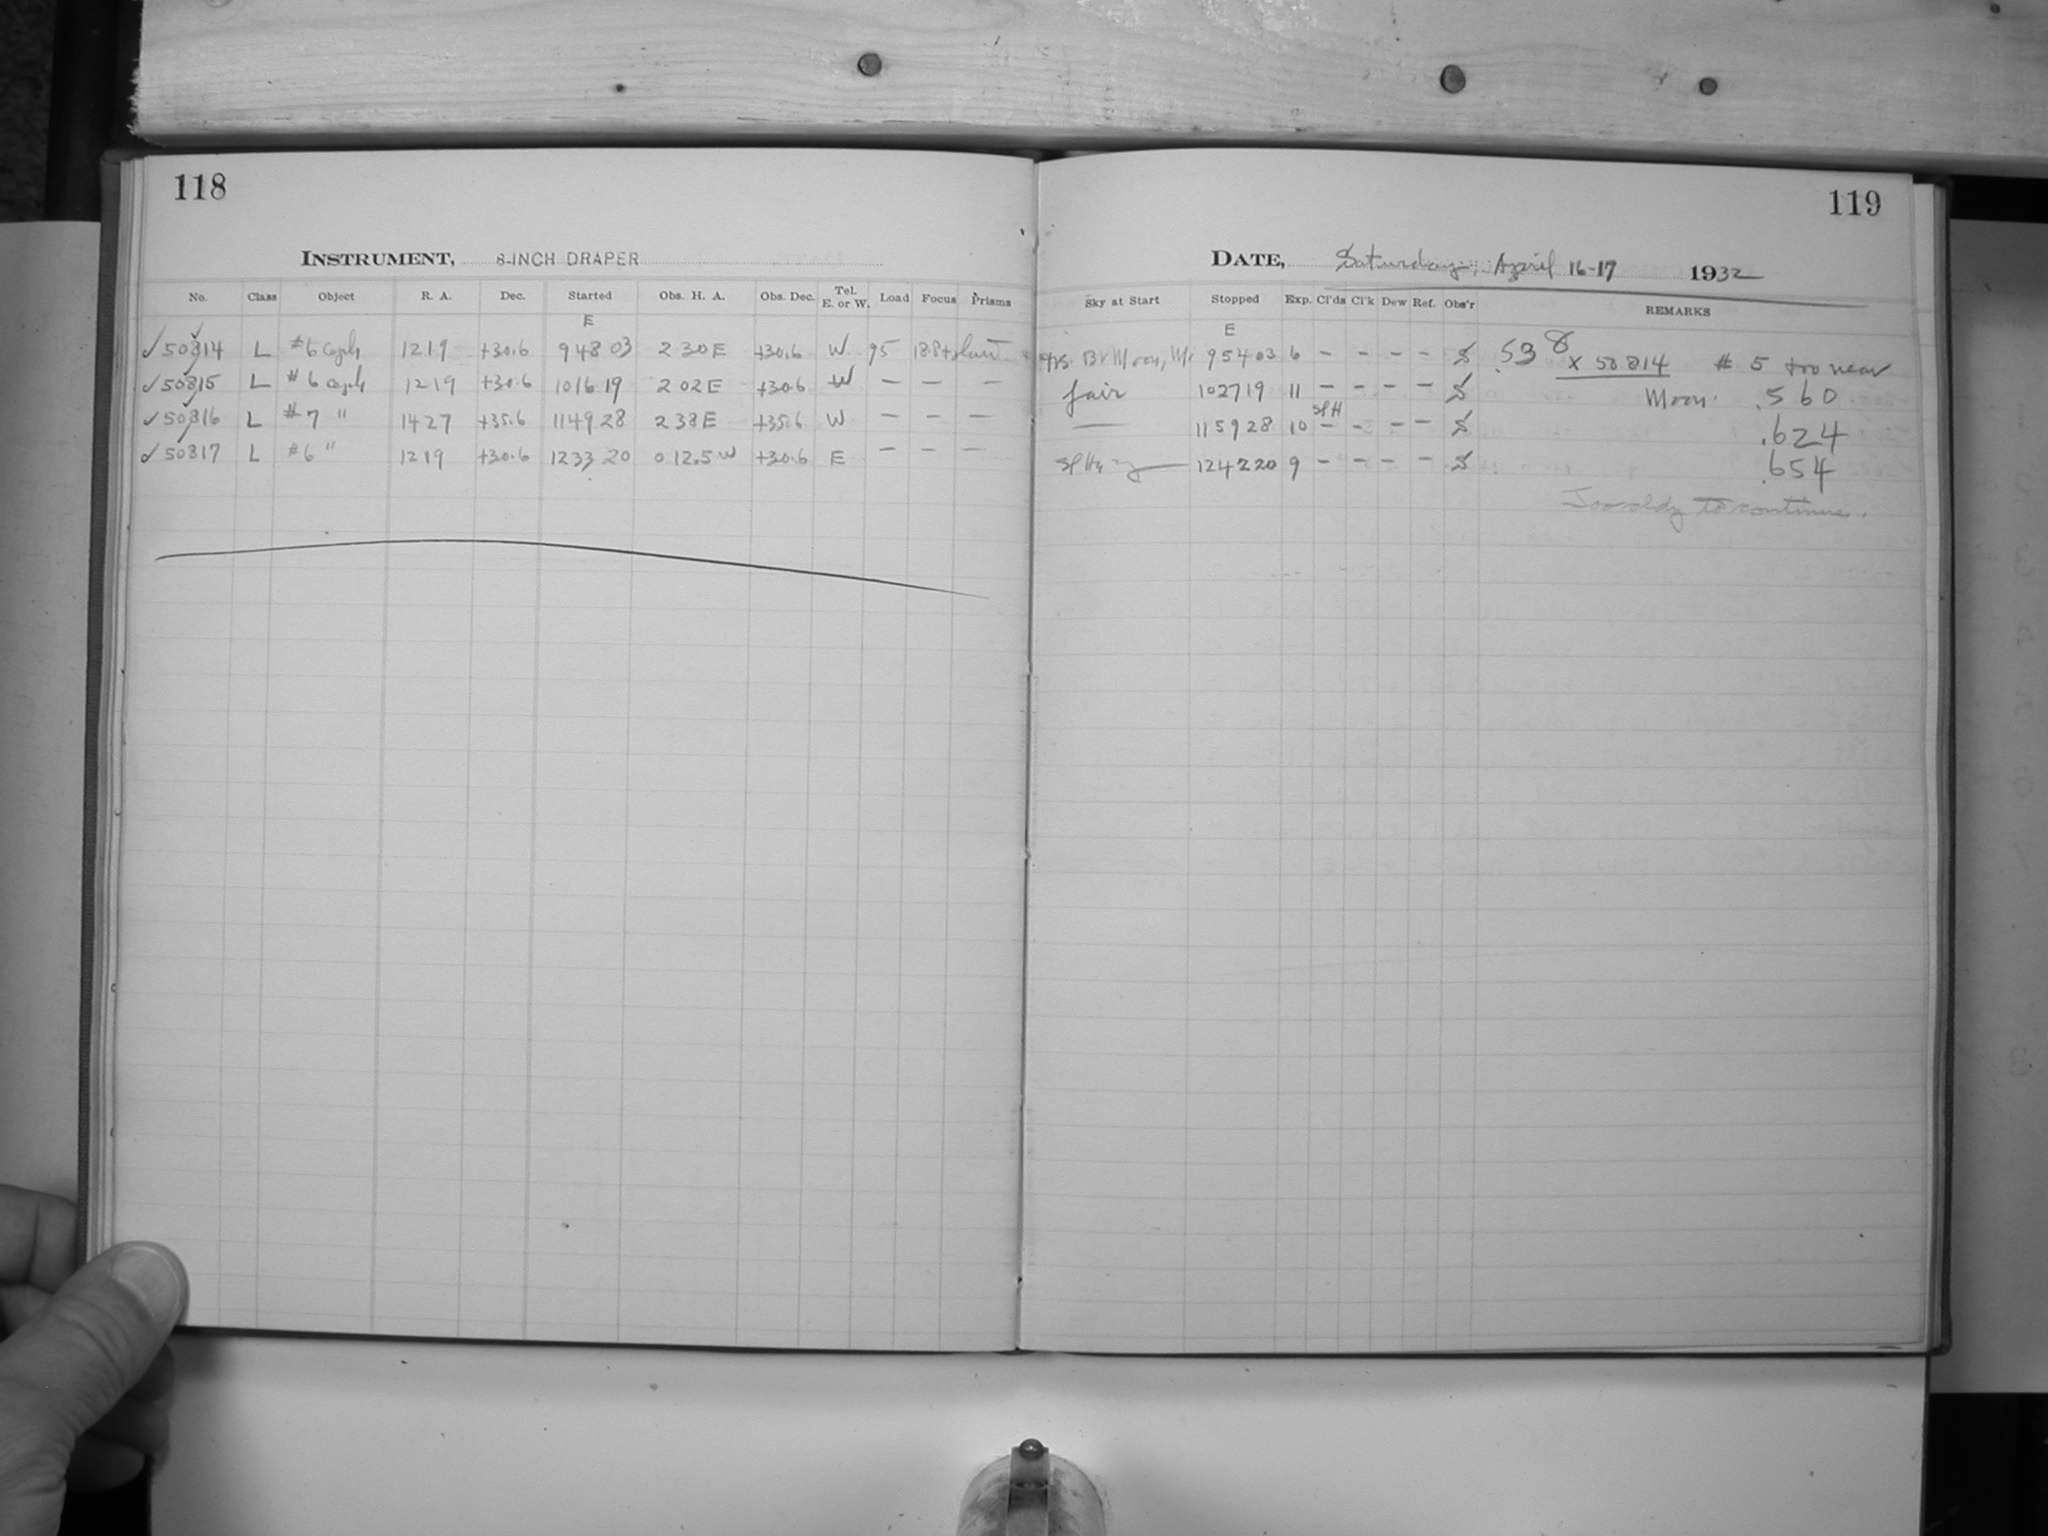 118
INSTRUMENT, 8-INCH DRAPER
No. Class Object R. A. Dec. Started Obs. H. A. Obs. Dec. Tel. E. or W. Load Focus Prisms
E
✓ 50814 L #6 ceph 1219 +30.6 9 48 03 2 30 E +30.6 W 95
✓ 50815 L #6 ceph 1219 +30.6 10 16 19 2 02 E +30.6 W — — —
✓ 50816 L #7 " 1427 +35.6 11 49 28 2 38 E +35.6 W — — —
✓ 50817 L #6 " 1219 +30.6 12 33 20 0 12.5 W +30.6 E — — —
119
DATE, Saturday, April 16-17 1932
Sky at Start Stopped Exp. Cl'ds Cl'k Dew Ref. Obs'r REMARKS
E
Br Moon, 9 54 03 6 – – – – .538 x 50814 # 5 too near
fair 10 27 19 11 – – – – Moon. .560
— 11 59 28 10 – – – – .624
12 42 20 9 – – – – .654
Too cldy to continue.